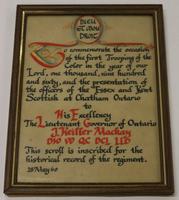 DIEU
ET MON
DROIT
To commemorate the occasion
of the first Trooping of the
Color in the year of our
Lord, one thousand, nine hundred
and sixty, and the presentation of the
officers of the Essex and Kent
Scottish at Chatham Ontario
to
His Excellency
The Lieutenant Governor of Ontario
J. Keiller Mackay
DSO VD QC DCL LLD
This scroll is inscribed for the
historical record of the regiment.
28 May 60